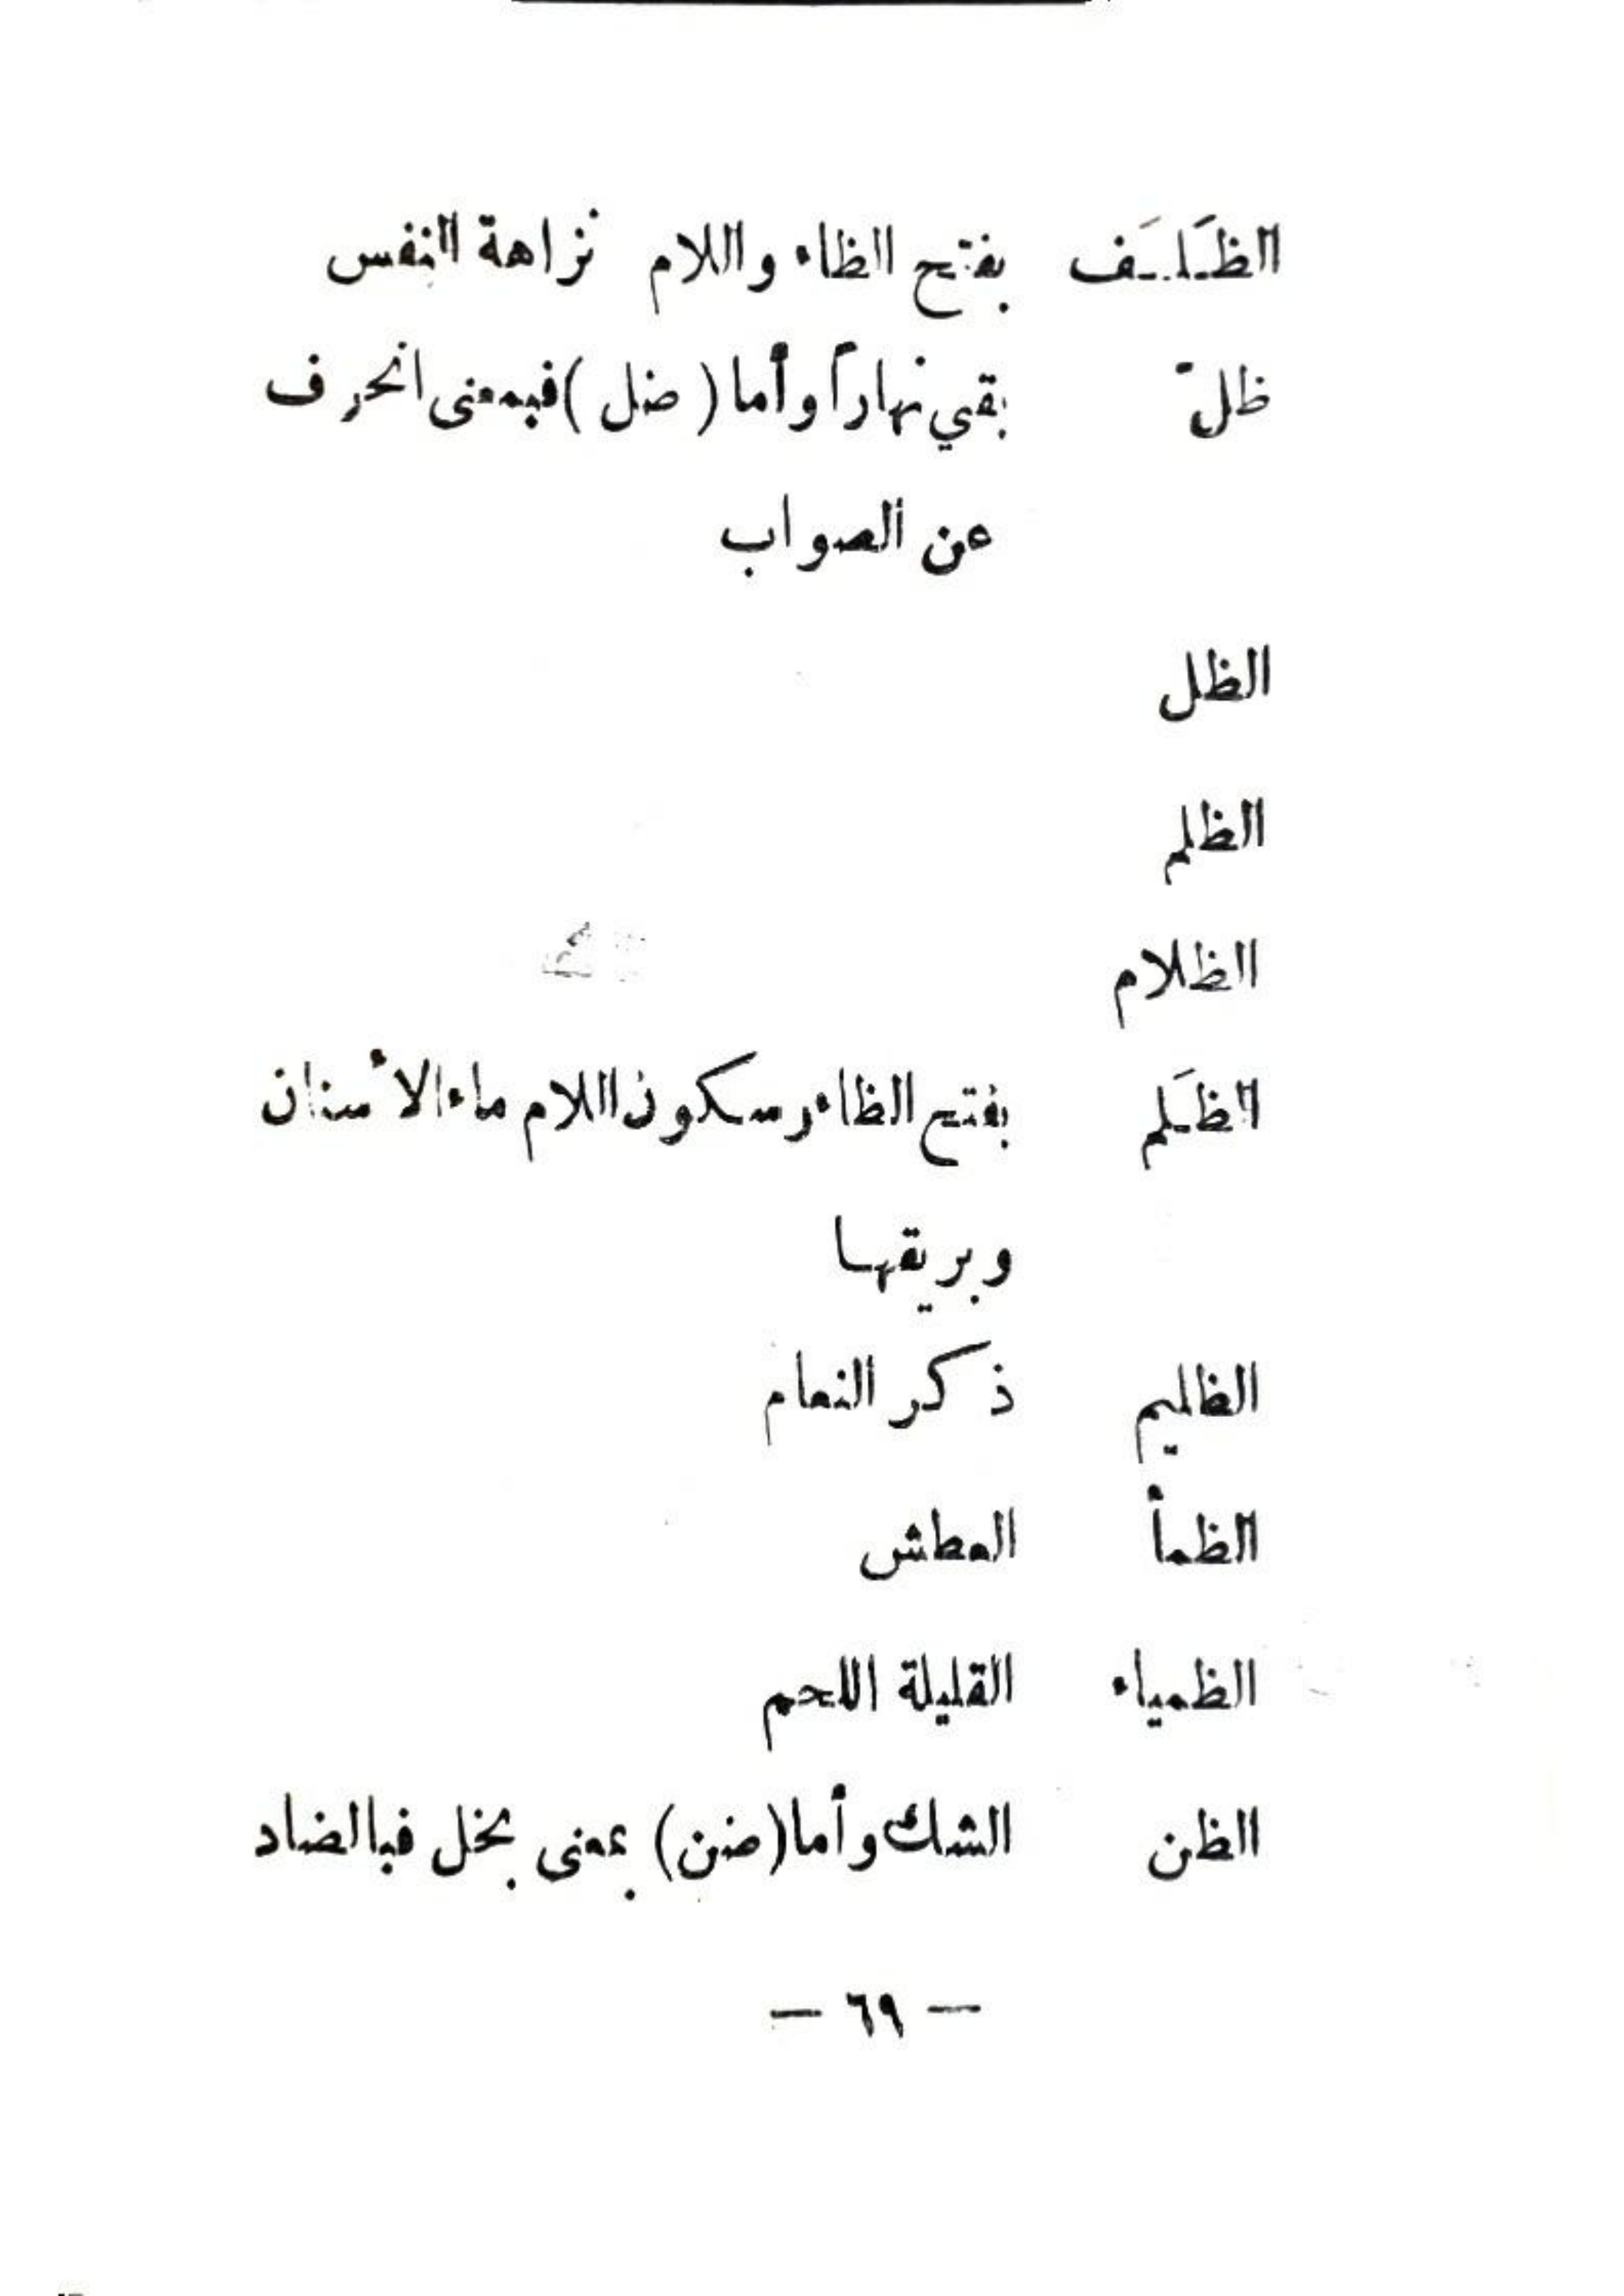 الظَلَف بفتح الظاء واللام نزاهة النفس
ظلّ بقي نهاراً وأما ( ضل ) فبمعنى انحرف
عن الصواب
الظل
الظلم
الظلام
الظَلم بفتح الظاء وسكون اللام ماء الأسنان
وبريقها
الظليم ذكر النعام
الظمأ العطش
الظمياء القليلة اللحم
الظن الشك وأما (ضن) بمعنى بخل فبالضاد
— ٦٩ —